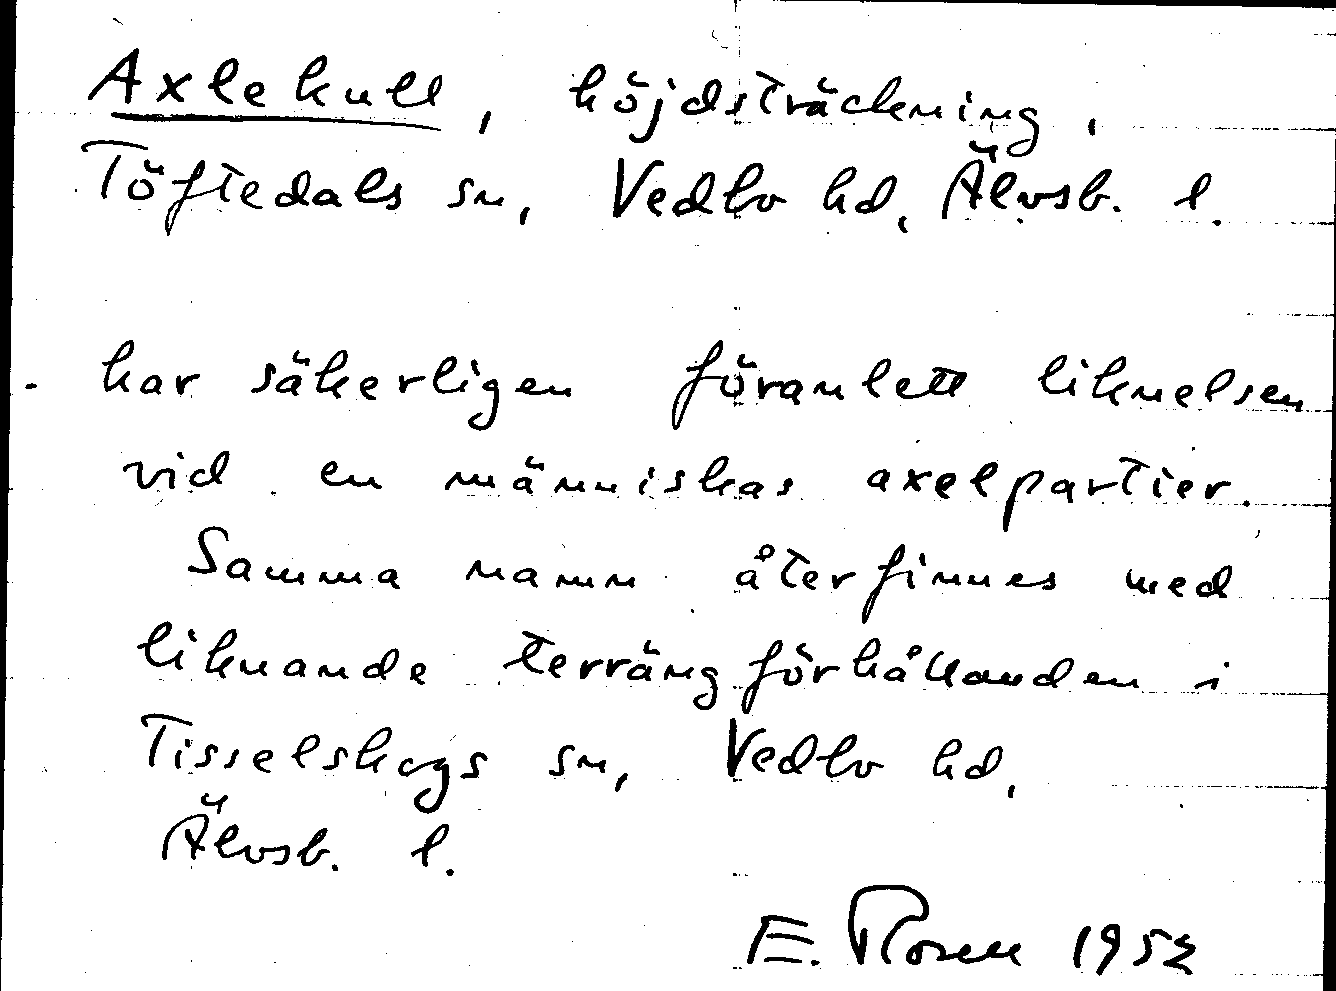 Axlekull, höjdsträckning,
Töftedals sn, Vedbo hd, Älvsb. l.
har säkerligen föranlett liknelsen
vid en människas axelpartier.
Samma namn återfinnes med
liknande terrängförhållanden i
Tisselskogs sn, Vedbo hd,
Älvsb. l.
E. Rosen 1952